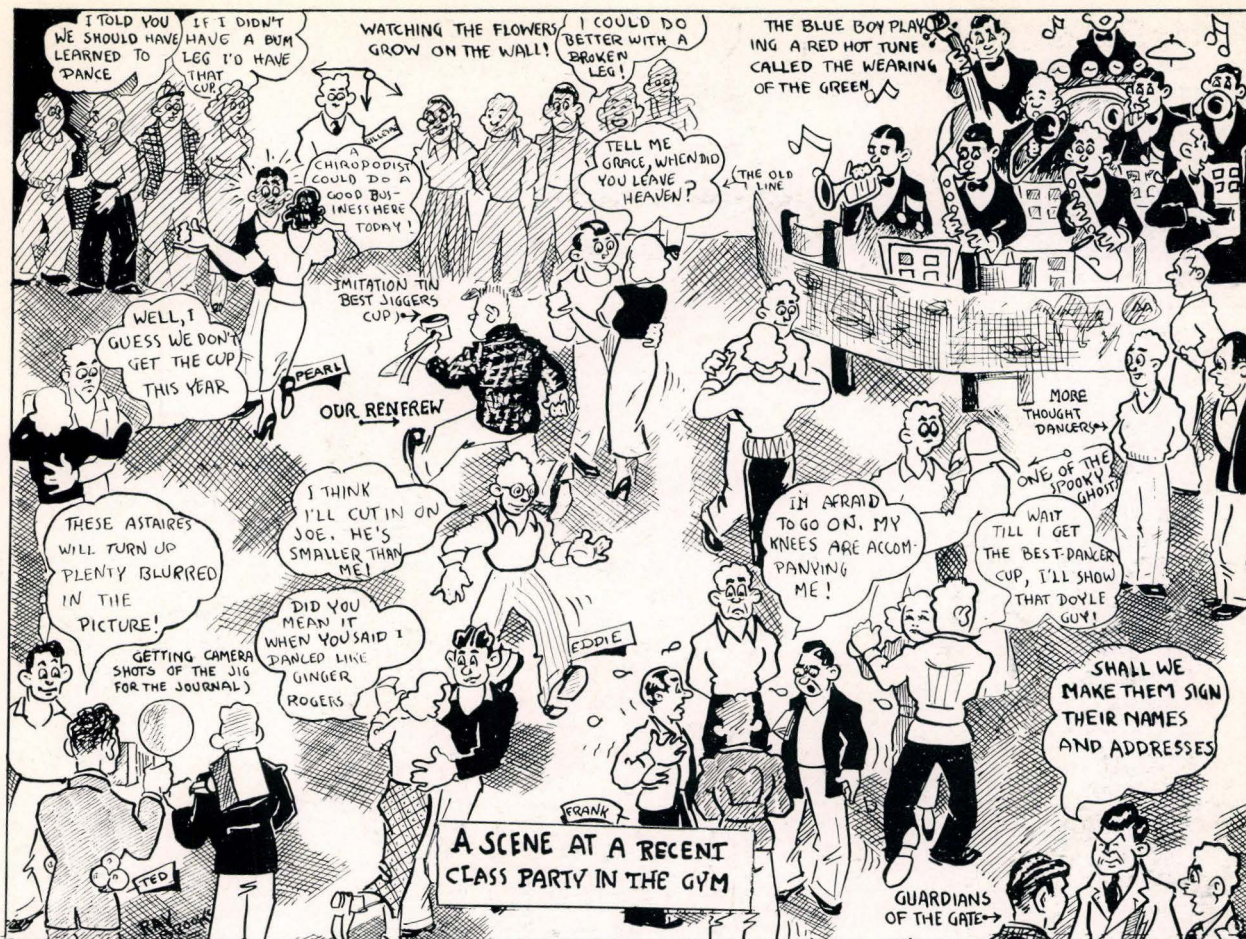 I TOLD YOU
WE SHOULD HAVE
LEARNED TO
DANCE
IF I DIDN'T
HAVE A BUM
LEG I'D HAVE
THAT
CUP.
WATCHING THE FLOWERS
GROW ON THE WALL!
I COULD DO
BETTER WITH A
BROKEN
LEG!
THE BLUE BOY PLAY-
ING A RED HOT TUNE
CALLED THE WEARING
OF THE GREEN
A
CHIROPODIST
COULD DO A
GOOD BUS-
INESS HERE
TODAY!
TELL ME
GRACE, WHEN DID
YOU LEAVE
HEAVEN?
THE OLD
LINE
IMITATION TIN
BEST JIGGERS
CUP)
WELL, I
GUESS WE DON'T
GET THE CUP
THIS YEAR
PEARL
OUR RENFREW
MORE
THOUGHT
DANCERS
ONE OF THE
SPOOKY
GHOST
I THINK
I'LL CUT IN ON
JOE. HE'S
SMALLER THAN
ME!
IM AFRAID
TO GO ON. MY
KNEES ARE ACCOM-
PANYING
ME!
WAIT
TILL I GET
THE BEST-DANCER
CUP, I'LL SHOW
THAT DOYLE
GUY!
THESE ASTAIRES
WILL TURN UP
PLENTY BLURRED
IN THE
PICTURE!
DID YOU
MEAN IT
WHEN YOU SAID I
DANCED LIKE
GINGER
ROGERS
EDDIE
GETTING CAMERA
SHOTS OF THE JIG
FOR THE JOURNAL)
SHALL WE
MAKE THEM SIGN
THEIR NAMES
AND ADDRESSES
FRANK
A SCENE AT A RECENT
CLASS PARTY IN THE GYM
TED
RAY
GUARDIANS
OF THE GATE